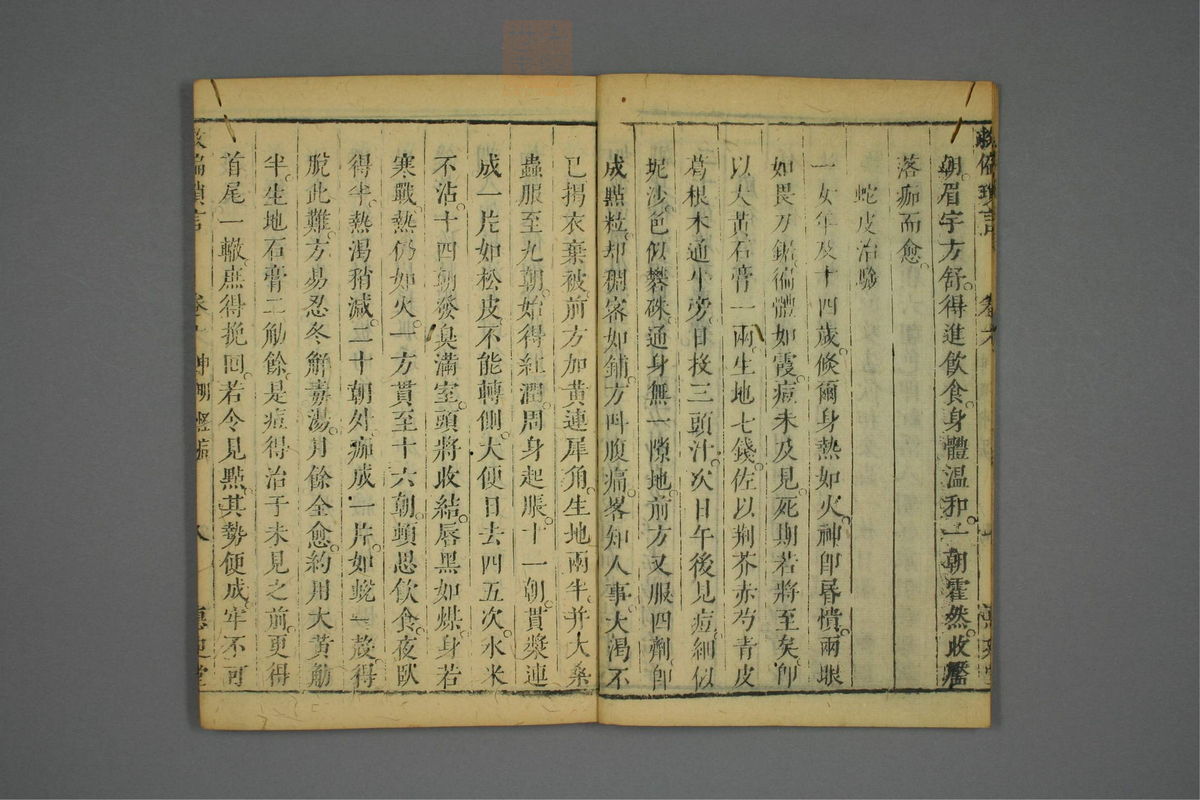 朝。眉宇方舒。得進飲食。身體溫和。二朝霍然。收靨
落痂而愈。
蛇皮治驗
一女年及十四歲。倏爾身熱如火。神卽昬憒。兩眼
如畏刀鋸。徧體如霞。痘未及見。死期若將至矣。卽
以大黃石膏一兩。生地七錢。佐以荆芥赤芍青皮
葛根木通牛旁。日投三頭汁。次日午後見痘。細似
坭沙。色似礬硃。通身無一隙地。前方又服四劑。卽
成點粒。却稠密如鋪。方呌腹痛。畧知人事。大渴不
已。揭衣棄被。前方加黃連犀角。生地兩半。并大桑
蟲。服至九朝。始得紅潤。周身起脹。十一朝。貫漿連
成一片。如松皮不能轉側。大便日去四五次。水米
不沾。十四朝發臭滿室。頭將收結。唇黑如煤。身若
寒戰。熱仍如火。一方貫至十六朝。頓思飲食。夜臥
得半。熱渴稍減。二十朝外。痂成一片。如蛻一殼。得
脫此難。方易忍冬解毒湯。月餘全愈。約用大黃觔
半。生地石膏二觔餘。是痘得治于未見之前。更得
首尾一轍。庶得挽回。若令見點。其勢便成。牢不可
救偏瑣言 卷 八